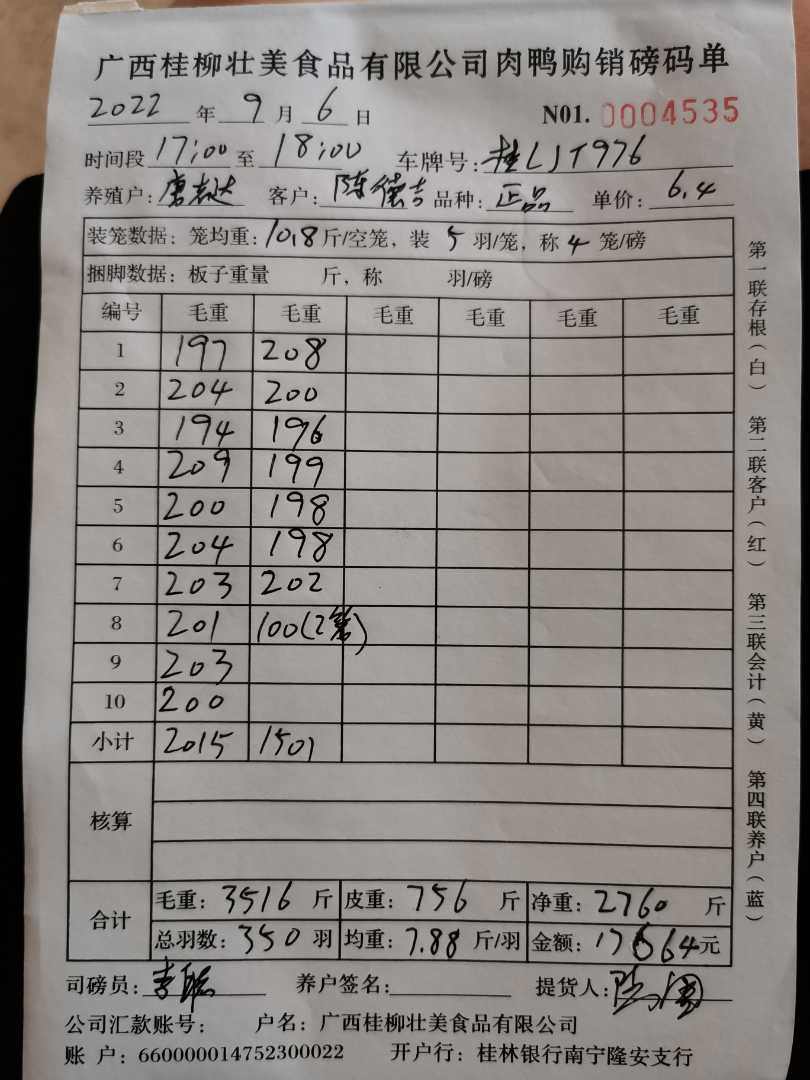 广西桂柳壮美食品有限公司肉鸭购销磅码单
2022 年 9 月 6 日 N01. 0004535
时间段 17:00 至 18:00 车牌号: 桂LJT976
养殖户: 唐志达 客户: 陈德吉 品种: 正品 单价: 6.4
装笼数据: 笼均重: 10.8 斤/空笼, 装 5 羽/笼, 称 4 笼/磅
捆脚数据: 板子重量 斤, 称 羽/磅
编号 毛重 毛重 毛重 毛重 毛重 毛重
1 197 208
2 204 200
3 194 196
4 209 199
5 200 198
6 204 198
7 203 202
8 201 100(2笼)
9 203
10 200
小计 2015 1501
核算
合计 毛重: 3516 斤 皮重: 756 斤 净重: 2760 斤
总羽数: 350 羽 均重: 7.88 斤/羽 金额: 17664 元
司磅员: 李 养户签名: 提货人:
公司汇款账号: 户名: 广西桂柳壮美食品有限公司
账 户: 660000014752300022 开户行: 桂林银行南宁隆安支行
第一联存根(白) 第二联客户(红) 第三联会计(黄) 第四联养户(蓝)